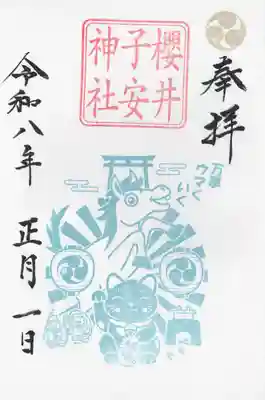 奉拝
櫻井
子安
神社
万事
ウマく
いく
令和八年 正月 一日